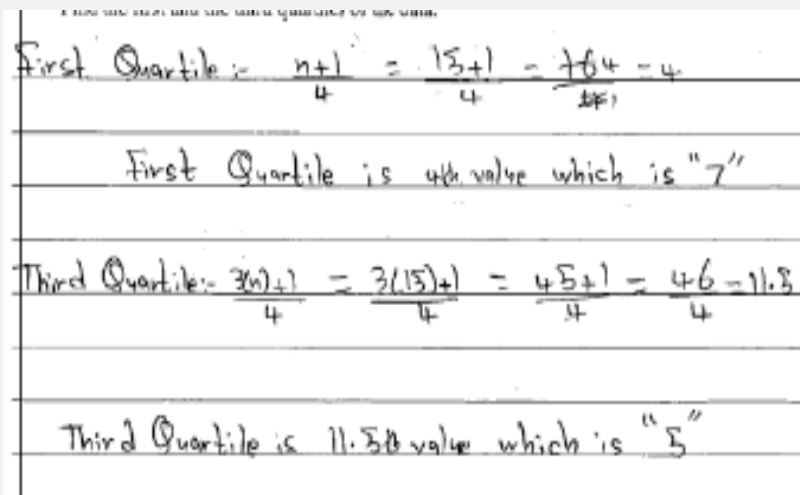 First Quartile :- n+1/4 = 15+1/4 = 16/4 = 4
First Quartile is 4th value which is "7"
Third Quartile:- 3(n)+1/4 = 3(15)+1/4 = 45+1/4 = 46/4 = 11.5
Third Quartile is 11.5th value which is "5"